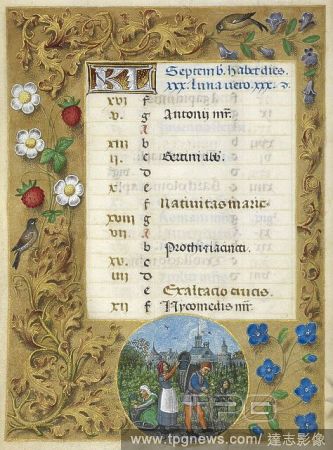 KL Septemb. habet dies.
xxx. luna vero. xxx. d.
xvi f
v. g Antonij mr̄.
a
xiii b
ii. c Bertini abb.
d
e
x f Nativitas marie
xviii g
vii a
b Prothi iacincti.
xv c
iiii d
e Exaltacio crucis.
xii f Nycomedis mr̄.
TPG
www.tpgnews.com / 達志影像